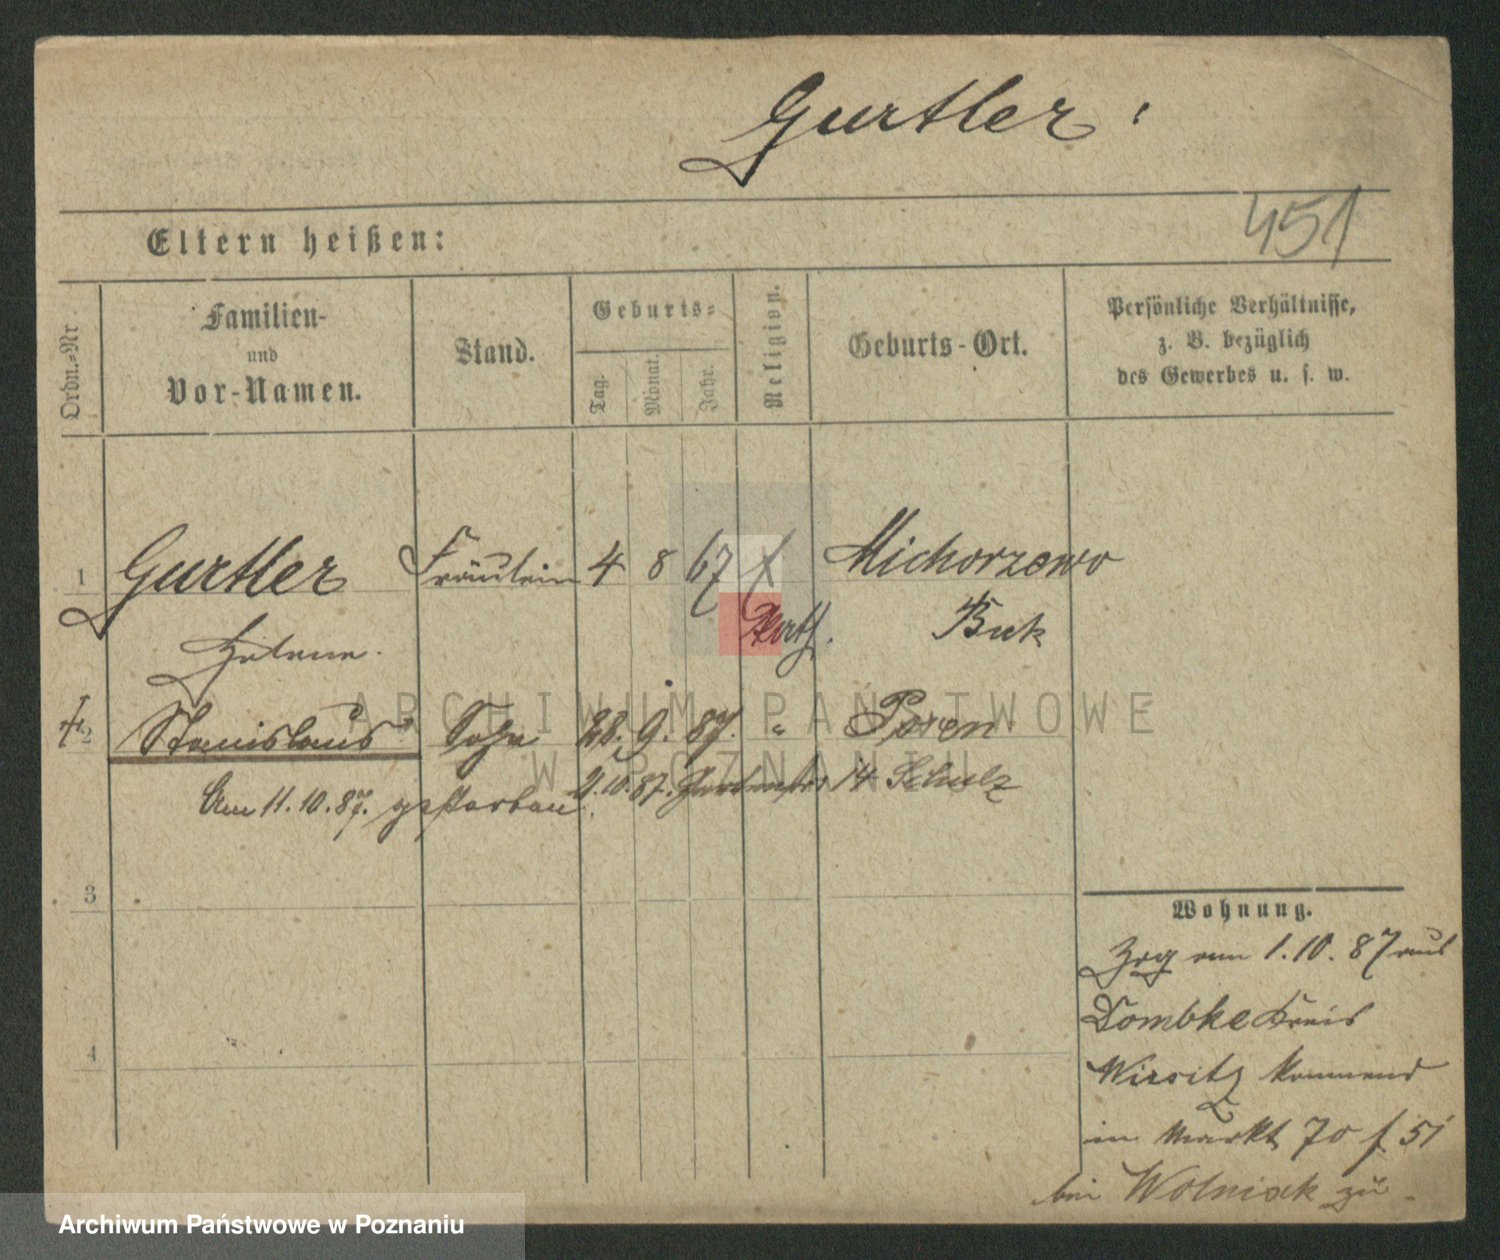 Gurtler
451
Eltern heißen:
Ordn.-Nr
Familien-
und
Vor-Namen.
Stand.
Geburts-
Tag.
Monat.
Jahr.
Religion.
Geburts-Ort.
Persönliche Verhältnisse,
z. B. bezüglich
des Gewerbes u. s. w.
1 Gurtler Fräulein 4 8 67 Michorzewo
Helene Kath. Buk
2 Stanislaus Sohn 28. 9. 87. " Posen
9.10.87. 14 Schulz
Am 11.10.87. gestorben.
3
4
Wohnung.
Zog am 1.10.87 aus
Dombke Kreis
Wirsitz kommend
in Markt 70
bei Wolniak zu.
ARCHIWUM PAŃSTWOWE
W POZNANIU
Archiwum Państwowe w Poznaniu